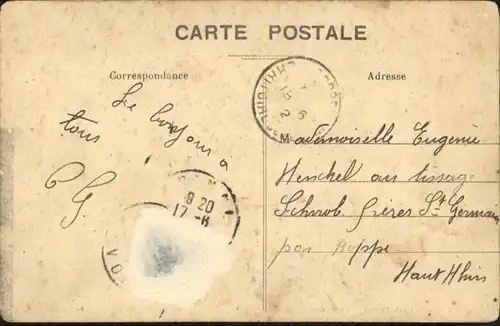 CARTE POSTALE
Correspondance
Adresse
Le bonjour a
tous
P G.
8 20
17-8
VO
Mademoiselle Eugenie
Henchel au tissage
Schwob. frères St Germain
par Roppe
Haut Rhin